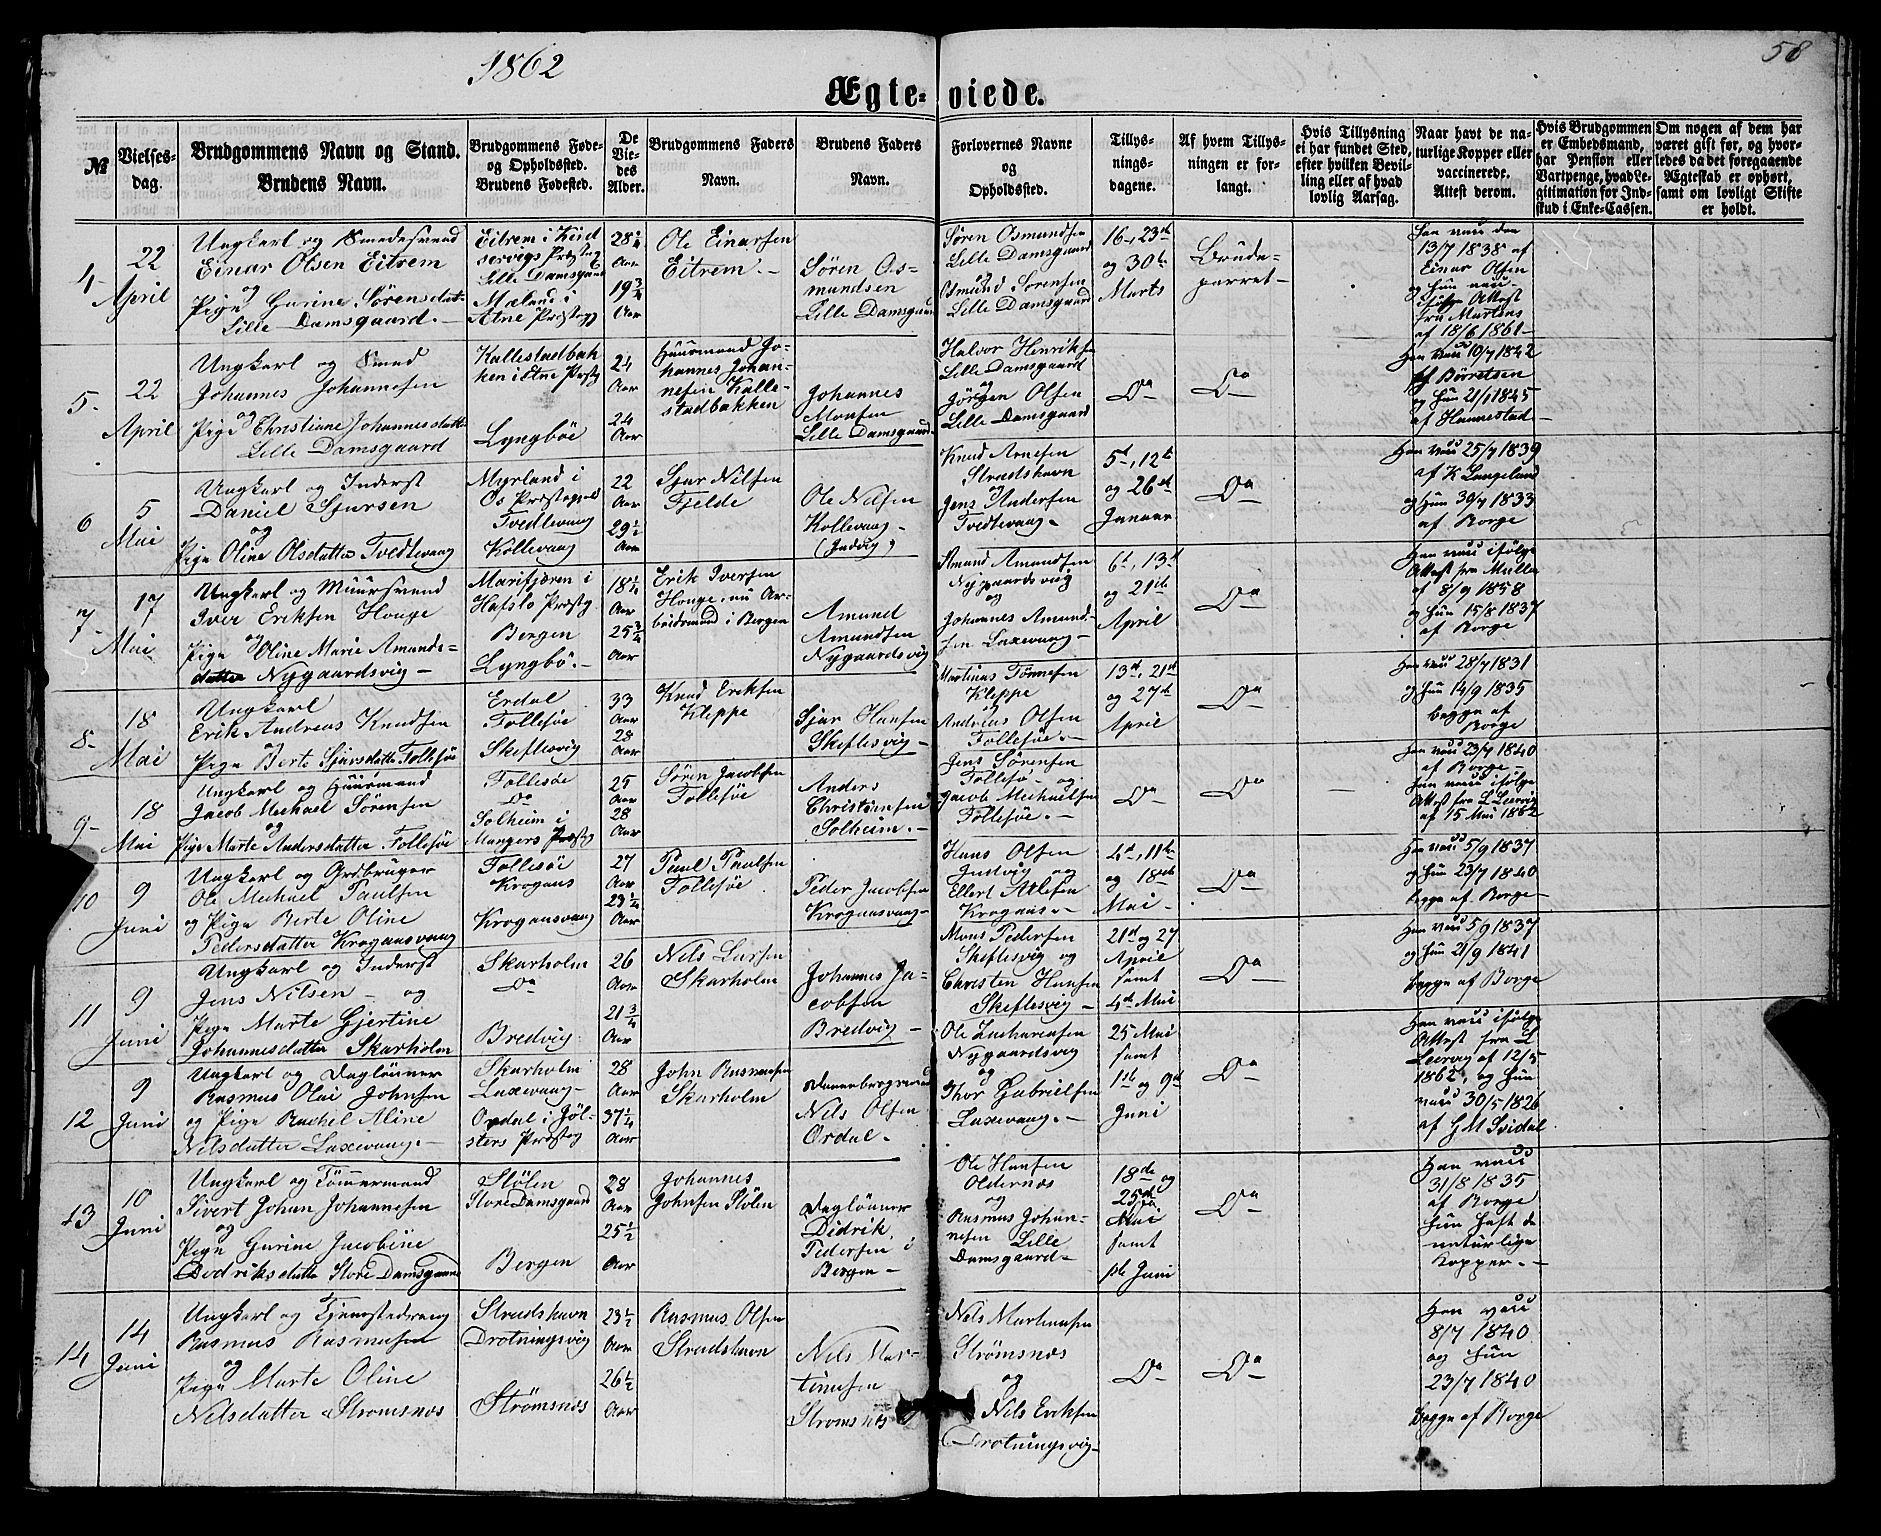 1862
58
Ægteviede.
№
Vielses-
dag.
Brudgommens Navn og Stand.
Brudens Navn.
Brudgommens Føde-
og Opholdssted.
Brudens Fødested.
De
Vie-
des
Alder.
Brudgommens Faders
Navn.
Brudens Faders
Navn.
Forlovernes Navne
og
Opholdssted.
Tillys-
nings-
dagene.
Af hvem Tillys-
ningen er for-
langt.
Hvis Tillysning
ei har fundet Sted,
efter hvilken Bevil-
ling eller af hvad
lovlig Aarsag.
Naar havt de na-
turlige Kopper eller
vaccinerede.
Attest derom.
Hvis Brudgommen
er Embedsmand,
har Pension eller
Vartpenge, hvad Le-
gitimation for Ind-
skud i Enke-Cassen.
Om nogen af dem har
været gift før, og hvor-
ledes da det foregaaende
Ægteskab er ophørt,
samt om lovligt Skifte
er holdt.
4
22
April
Ungkarl og Smedesvend
Einar Olsen Eitrem
og
Pige Gurine Sørensdat.
Lille Damsgaard.
Eitrem i Kind
servigs Præstag
Lille Damsgaard
Mæland i
Etne Præstegj
28 1/4
Aar
19 3/4
Aar
Ole Einarsen
Eitrem.
Søren Os-
mundsen
Lille Damsgaard
Søren Osmundsen
Lille Damsgaard
og
Osmund Sørensen
Lille Damsgaard
16, 23de
og 30te
Marts
Brude-
parret
Han vacc den
13/7 1838 af
Einar Olsen
og hun vacc.
ifølge Attest
fra Martens
af 18/6 1861
5
22
April
Ungkarl og Smed
Johannes Johannesen
og
Pige Christiane Johannesdatt.
Lille Damsgaard
Kallestadbak
ken i Etne Præstg
Lyngbøe
24
Aar
24
Aar
Huusmand Jo-
hannes Johan-
nesen Kalle-
stadbakken
Johannes
Monsen
Lille Damsgaard
Halvor Henriksen
Lille Damsgaard
og
Jørgen Olsen
Lille Damsgaard
Do
Do
Han vacc 10/7 1842
af Børretsen
og hun 21/1 1845
af Hannestad
6
5
Mai
Ungkarl og Inderst
Daniel Sjursen
og
Pige Oline Olsdatter Tvedtevaag
Myrland i
Os Præstegjeld
Tvedtevaag
Kollevaag
22
Aar
29 1/2
Aar
Sjur Nilsen
Fjelde
Ole Nilsen
Kollevaag
(Indvig)
Knud Arnesen
Strudshavn
og
Jens Andersen
Tvedtevaag
5te, 12te
og 26de
Januar
Do
Han vacc 25/7 1839
af K Langeland
og hun 30/7 1833
af Borge
7
17
Mai
Ungkarl og Muursvend
Iver Eriksen Houge
og
Pige Oline Marie Amunds-
datter Nygaardsvig
Marifjæren i
Hafslo Præstg
Bergen
Lyngbø.
18 1/2
Aar
25 3/4
Aar
Erik Iversen
Houge, nu Ar-
beidsmand i Bergen
Amund
Amundsen
Nygaardsvig
Amund Amundsen
Nygaardsvig
og
Johannes Amund-
sen Laxevaag
6te, 13de
og 21de
April
Do
Han vacc ifølge
Attest fra Müller
af 8/9 1858
og hun 15/8 1837
af Borge
8
18
Mai
Ungkarl
Erik Andreas Knudsen
Pige Berte Sjursdatter Follesøe
Erdal
Follesøe
Skeflesvig
33
Aar
28
Aar
Knud Eriksen
Kleppe
Sjur Hansen
Skeflesvig
Martinus Tønnesen
Kleppe
og
Andreas Olsen
Follesøe.
13de, 21de
og 27de
April
Do
Han vacc 28/7 1831
og hun 14/9 1835
begge af
Borge
9
18
Mai
Ungkarl og Huusmand
Jacob Mechael Sørensen
og
Pige Marte Andersdatter Follesøe
Follesøe
Do
Solheim i
Mangers Præstg
25
Aar
28
Aar
Søren Jacobsen
Follesøe
Anders
Christiansen
Solheim.
Jens Sørensen
Follesø og
Jacob Mechaelsen
Follesøe.
Do
Do
Han vacc 23/7 1840
af Borge
Hun vacc ifølge
Attest fra L Leervig
af 15 Mai 1862
10
9
Juni
Ungkarl og Grdbruger
Ole Mechael Paulsen
og Pige Berte Oline
Pedersdatter Krogaasvaag
Follesøe
Krogaas
Krogaasvaag
27
Aar
23 1/4
Aar
Paul Paulsen
Follesøe
Peder Jacobsen
Krogaasvaag
Hans Olsen
Indvig og
Ellert Atlesen
Krogaas.
4de, 11te
og 18de
Mai
Do
Han vacc 5/9 1837
og hun 23/7 1840
begge af Borge
11
9
Juni
Ungkarl og Inderst
Jens Nilsen og
Pige Marte Gjertine
Johannesdatter Skarholm
Skarholm
Do
Bredvig
26
Aar
21 3/4
Aar
Nils Larsen
Skarholm
Johannes Ja-
cobsen
Bredvig
Mons Pedersen
Skeflesvig og
Christen Hansen
Skeflesvig
21de og 27
April
samt
4de Mai
Do
Han vacc 5/9 1837
og hun 21/9 1841
begge af Borge
12
9
Juni
Ungkarl og Dagløner
Rasmus Olai Johnsen
og Pige Rachel Aline
Nilsdatter Laxevaag.
Skarholm
Laxevaag
Ordal i Jøl-
sters Præstg
28
Aar
37 1/4
Aar
John Rasmusen
Skarholm
Dannebrogsmand
Nils Olsen
Ordal.
Ole Zachariasen
Nygaardsvig
og
Thor Gabrielsen
Laxevaag.
25 Mai
samt
1te og 9de
Juni
Do
Han vacc ifølge
Attest fra L
Leervig af 12/5
1862, og hun
vacc 30/5 1826
af H M Svidal
13
10
Juni
Ungkarl og Tømmermand
Sivert Johan Johannesen
og
Pige Gurine Jacobine
Dedriksdatter Store Damsgaard
Stølen
Store Damsgaard
Bergen
28
Aar
25 1/2
Aar
Johannes
Johnsen Stølen
Dagløner
Didrik
Pedersen i
Bergen
Ole Hansen
Oldernæs
og
Rasmus Johan-
nesen Lille
Damsgaard
18de og
25de
Mai
samt
1ste Juni
Do
Han vacc
31/8 1835
af Borge
Hun haft de
naturlige
Kopper.
14
14
Juni
Ungkarl og Tjenestedreng
Rasmus Rasmusen
og
Pige Marte Oline
Nilsdatter Strømsnæs
Strudshavn
Drotningsvig
Strømsnæs
23 1/2
Aar
26 1/2
Aar
Rasmus Olsen
Strudshavn
Nils Mar-
tinusen
Strømsnæs
Nils Martinusen
Strømsnæs
og
Nils Eriksen
Drotningsvig
Do
Do
Han vacc
8/7 1840
og hun
23/7 1840
Begge af Borge